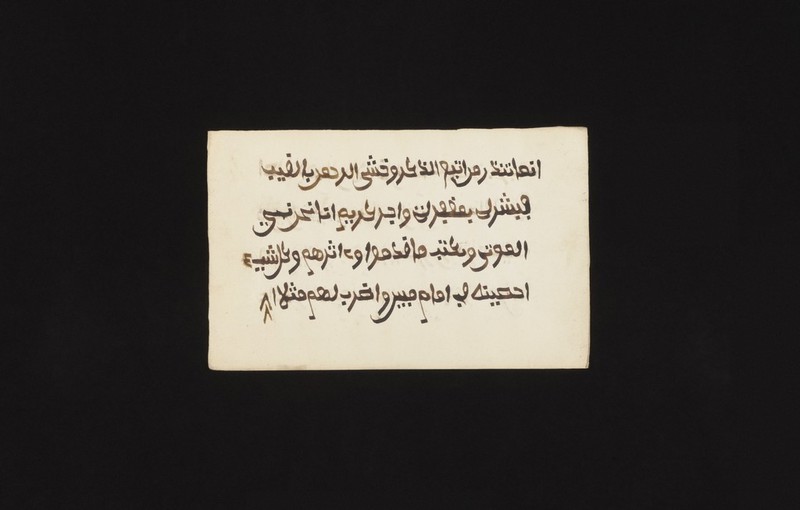 انما تنذر من اتبع الذكر وخشي الرحمن بالغيب
فبشره بمغفرة واجر كريم انا نحن نحي
الموتى ونكتب ما قدموا وءاثرهم وكل شيء
احصينه في امام مبين واضرب لهم مثلا ا